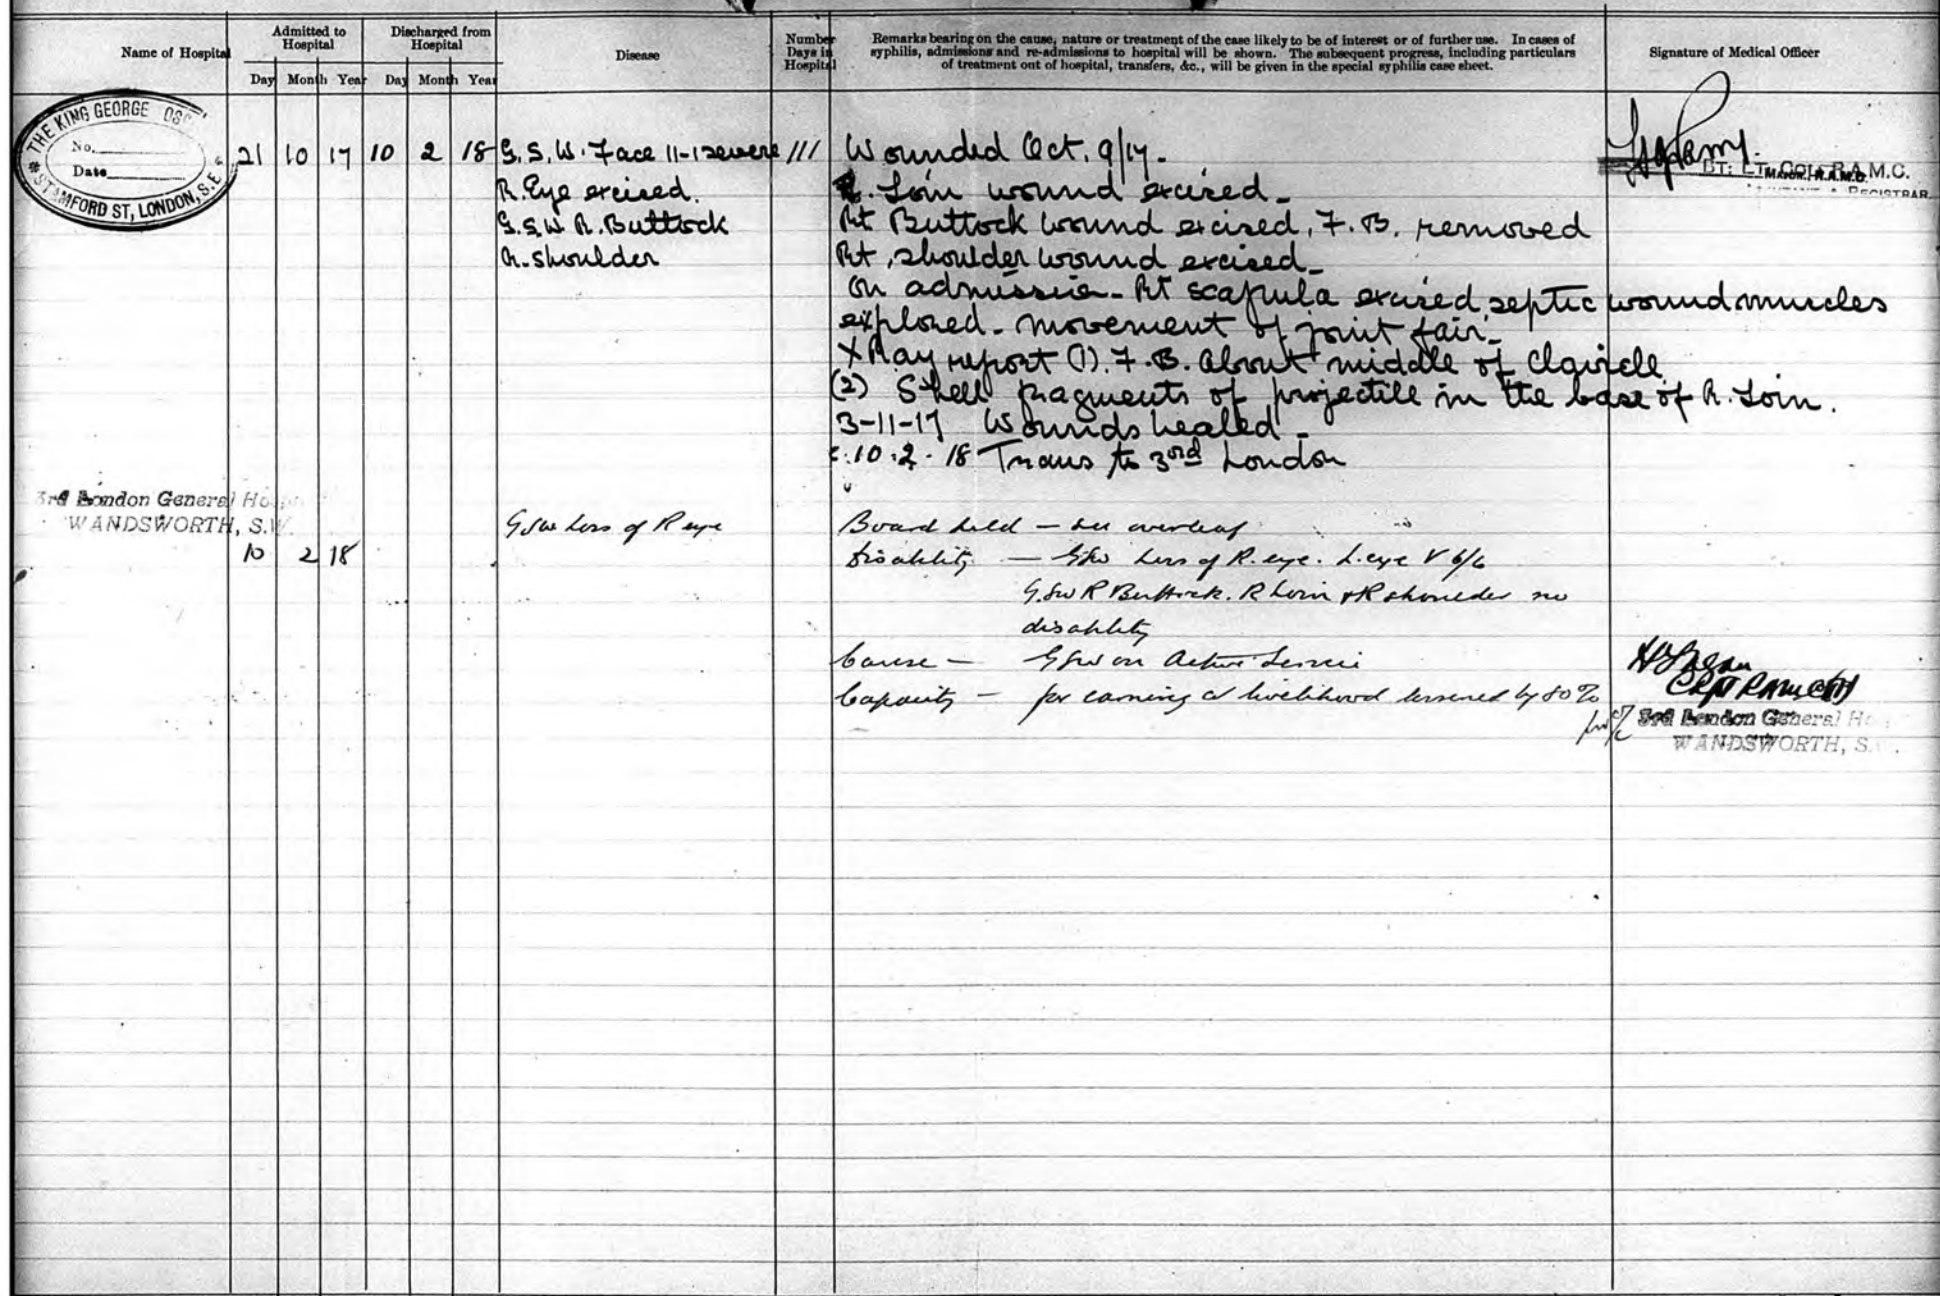 Name of Hospital
Admitted to Hospital
Discharged from Hospital
Disease
Number Days in Hospital
Remarks bearing on the cause, nature or treatment of the case likely to be of interest or of further use. In cases of
syphilis, admissions and re-admissions to hospital will be shown. The subsequent progress, including particulars
of treatment out of hospital, transfers, &c., will be given in the special syphilis case sheet.
Signature of Medical Officer
Day Month Year Day Month Year
THE KING GEORGE
No.
Date
STAMFORD ST, LONDON, S.E.
21 10 17 10 2 18 G.S.W. Face 11-1 severe 111 Wounded Oct. 9/17.
BT: LT. COL. R.A.M.C.
MAJOR. R.A.M.C.
REGISTRAR
R. Eye excised. R. Loin wound excised -
G.S.W R. Buttock Rt Buttock wound excised, F.B. removed
R. shoulder Rt, shoulder wound excised -
On admission - Rt scapula excised, septic wound muscles
explored - movement of joint fair -
X Ray report (1). F.B. About middle of Clavicle
(2) Shell fragments of projectile in the base of R. Loin.
3-11-17 Wounds healed -
10.2.18 Trans to 3rd London
3rd London General
WANDSWORTH, S.W.
GSW Loss of R eye Board held - see overleaf
10 2 18
Disability - GSW Loss of R. eye. L. eye V 6/6
G.SW R Buttock. R Loin & R shoulder no
disability
Cause - GSW on Active Service
Capacity - for earning a livelihood lessened by 80%
3rd London General
WANDSWORTH, S.